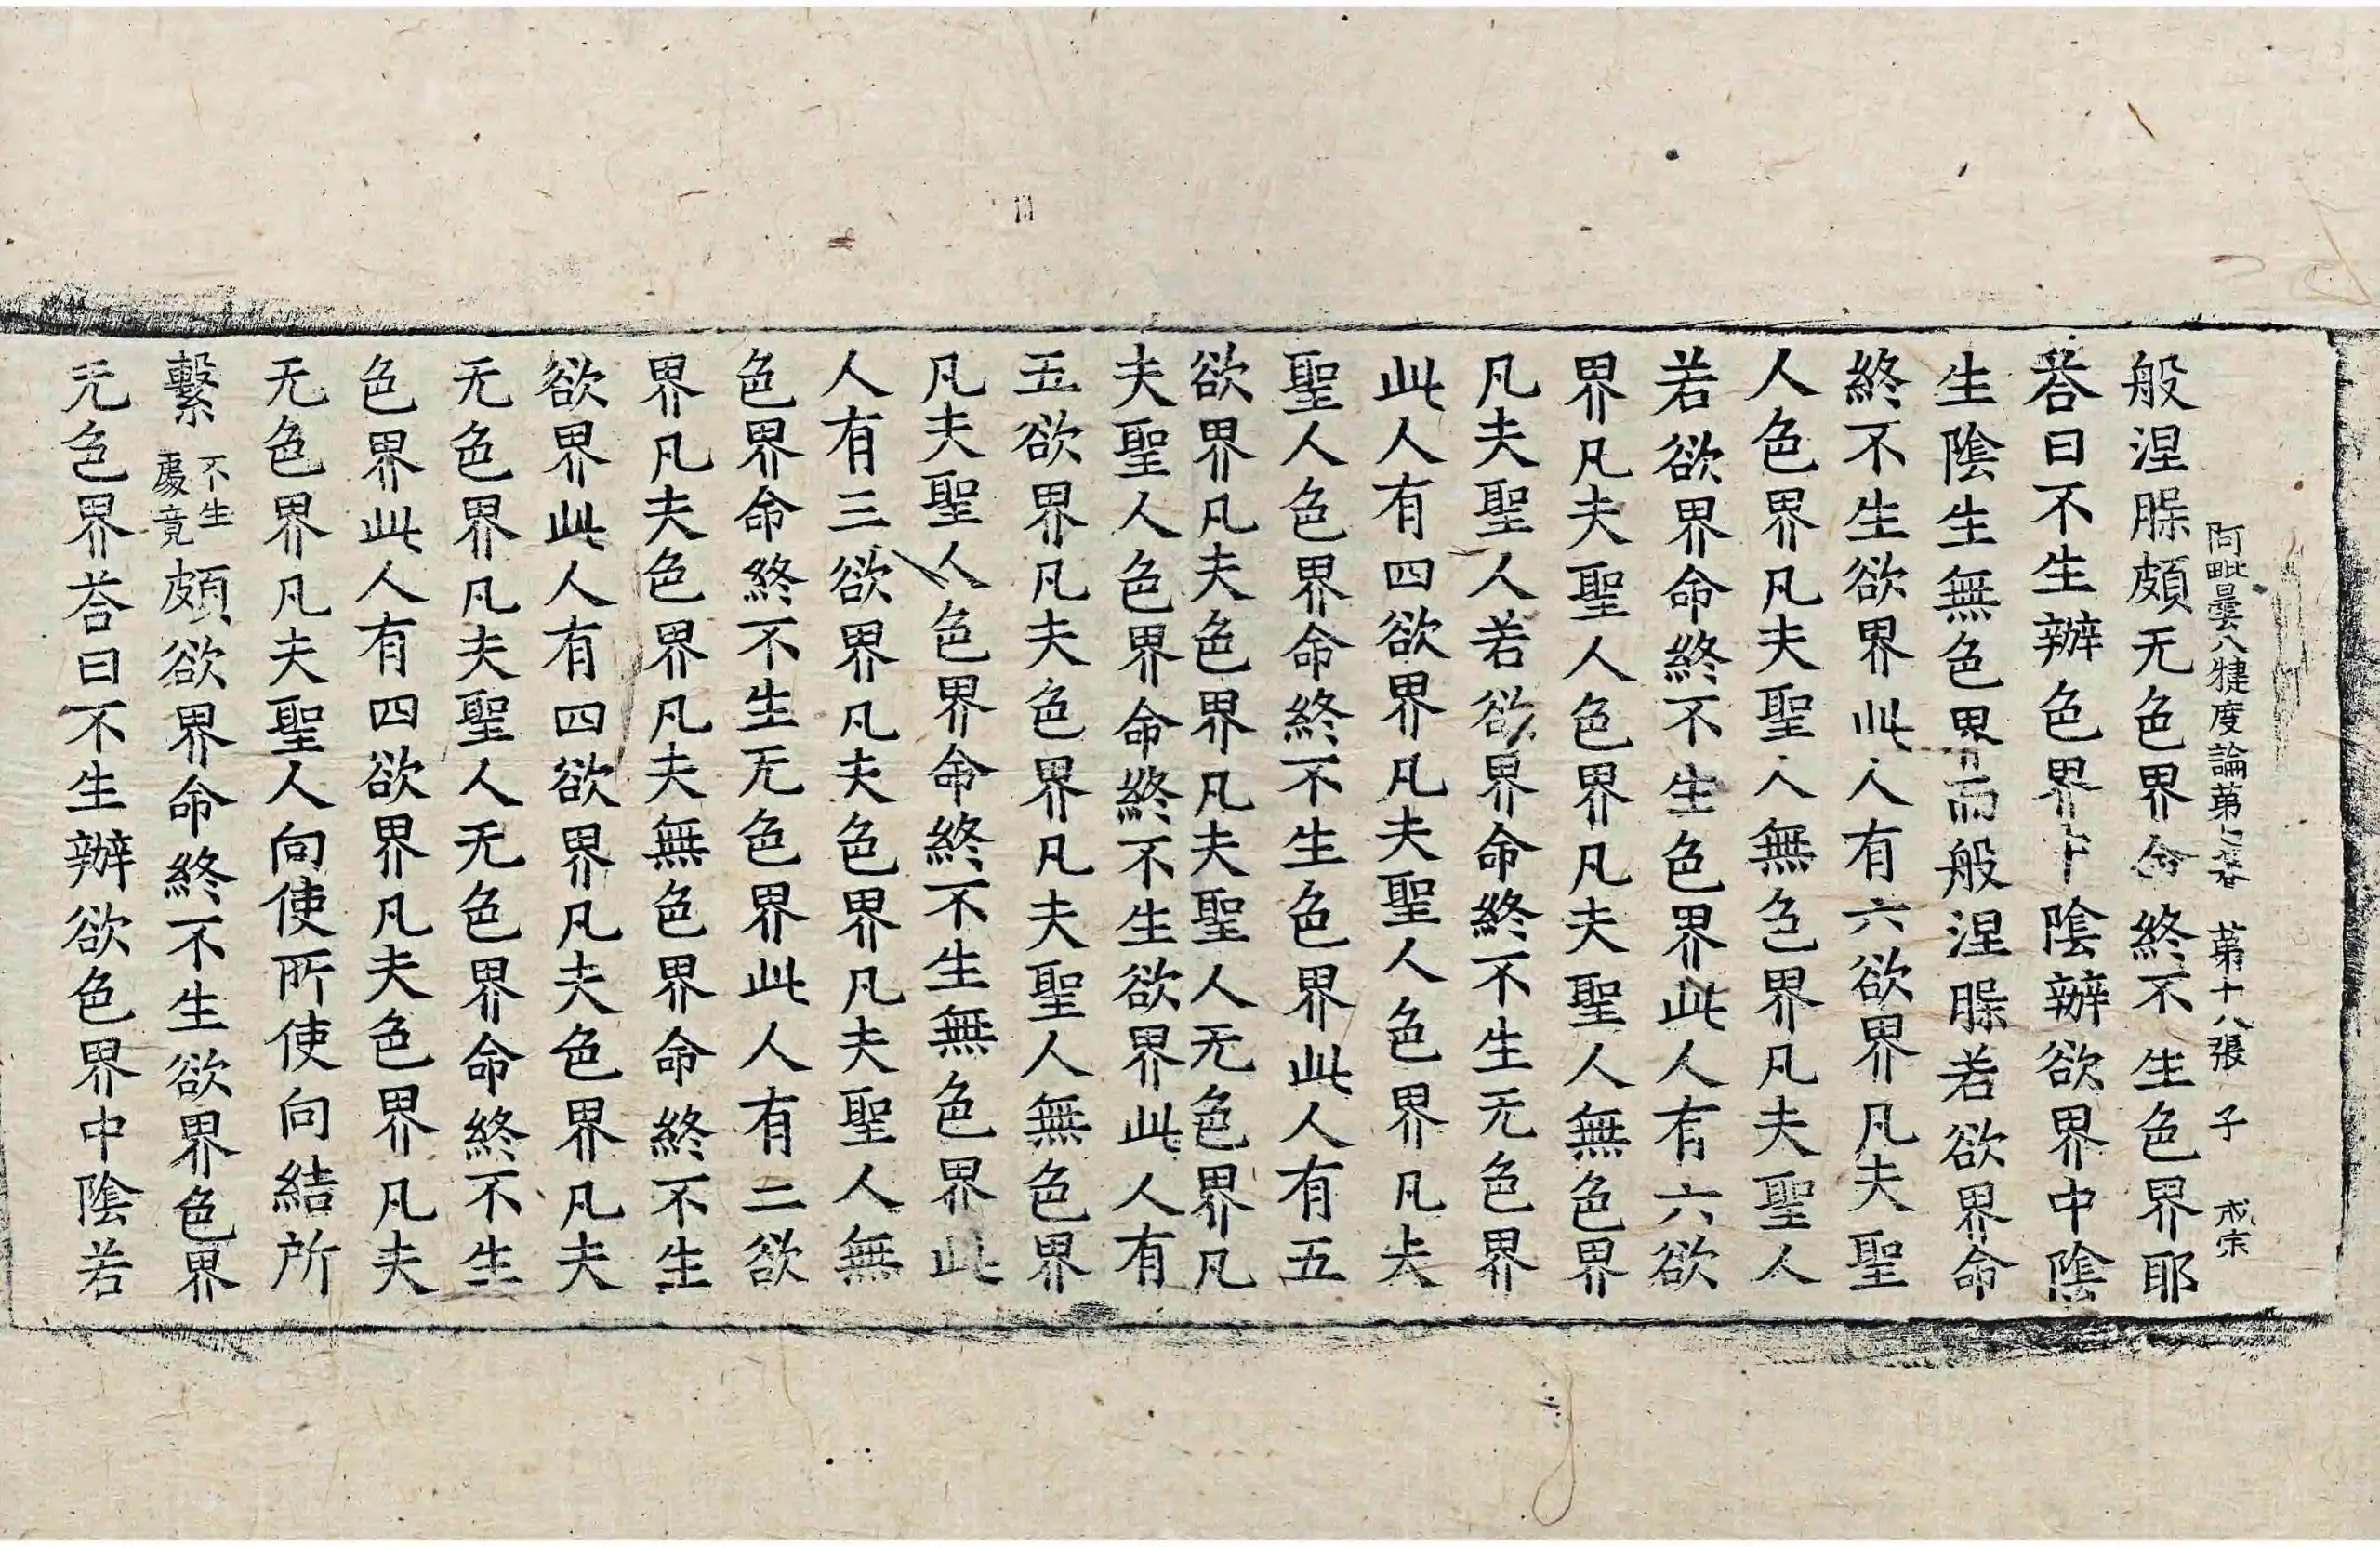 阿毗曇八犍度論苐七卷 苐十八張 子 戒宗
般涅㬳頗无色界命終不生色界耶
荅曰不生辦色界中陰辦欲界中陰
生陰生無色界而般涅㬳若欲界命
終不生欲界此人有六欲界凡夫聖
人色界凡夫聖人無色界凡夫聖人
若欲界命終不生色界此人有六欲
界凡夫聖人色界凡夫聖人無色界
凡夫聖人若欲界命終不生无色界
此人有四欲界凡夫聖人色界凡夫
聖人色界命終不生色界此人有五
欲界凡夫色界凡夫聖人无色界凡
夫聖人色界命終不生欲界此人有
五欲界凡夫色界凡夫聖人無色界
凡夫聖人色界命終不生無色界此
人有三欲界凡夫色界凡夫聖人無
色界命終不生无色界此人有二欲
界凡夫色界凡夫無色界命終不生
欲界此人有四欲界凡夫色界凡夫
无色界凡夫聖人无色界命終不生
色界此人有四欲界凡夫色界凡夫
无色界凡夫聖人向使所使向結所
繫不生處竟頗欲界命終不生欲界色界
无色界荅曰不生辦欲色界中陰若